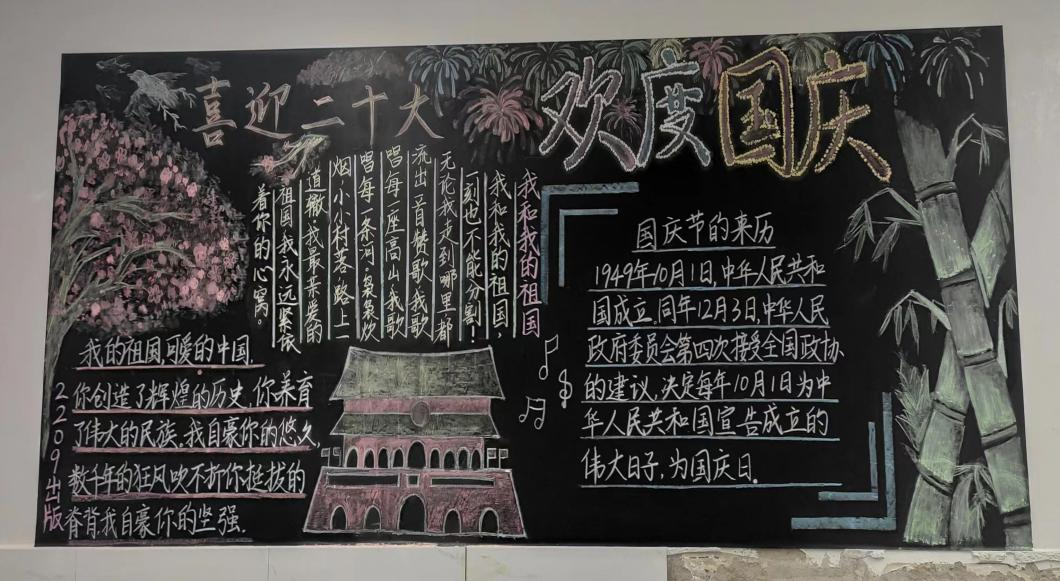 喜迎二十大
欢度国庆
我和我的祖国
我和我的祖国,
一刻也不能分割!
无论我走到哪里都
流出一首赞歌,我歌
唱每一座高山,我歌
唱每一条河。袅袅炊
烟,小小村落,路上一
道辙。我最亲爱的
祖国,我永远紧依
着你的心窝。
国庆节的来历
1949年10月1日,中华人民共和
国成立,同年12月3日,中华人民
政府委员会第四次接受全国政协
的建议,决定每年10月1日为中
华人民共和国宣告成立的
伟大日子,为国庆日。
我的祖国,可爱的中国.
你创造了辉煌的历史,你养育
了伟大的民族.我自豪你的悠久,
数千年的狂风吹不折你挺拔的
脊背.我自豪你的坚强.
2209出版